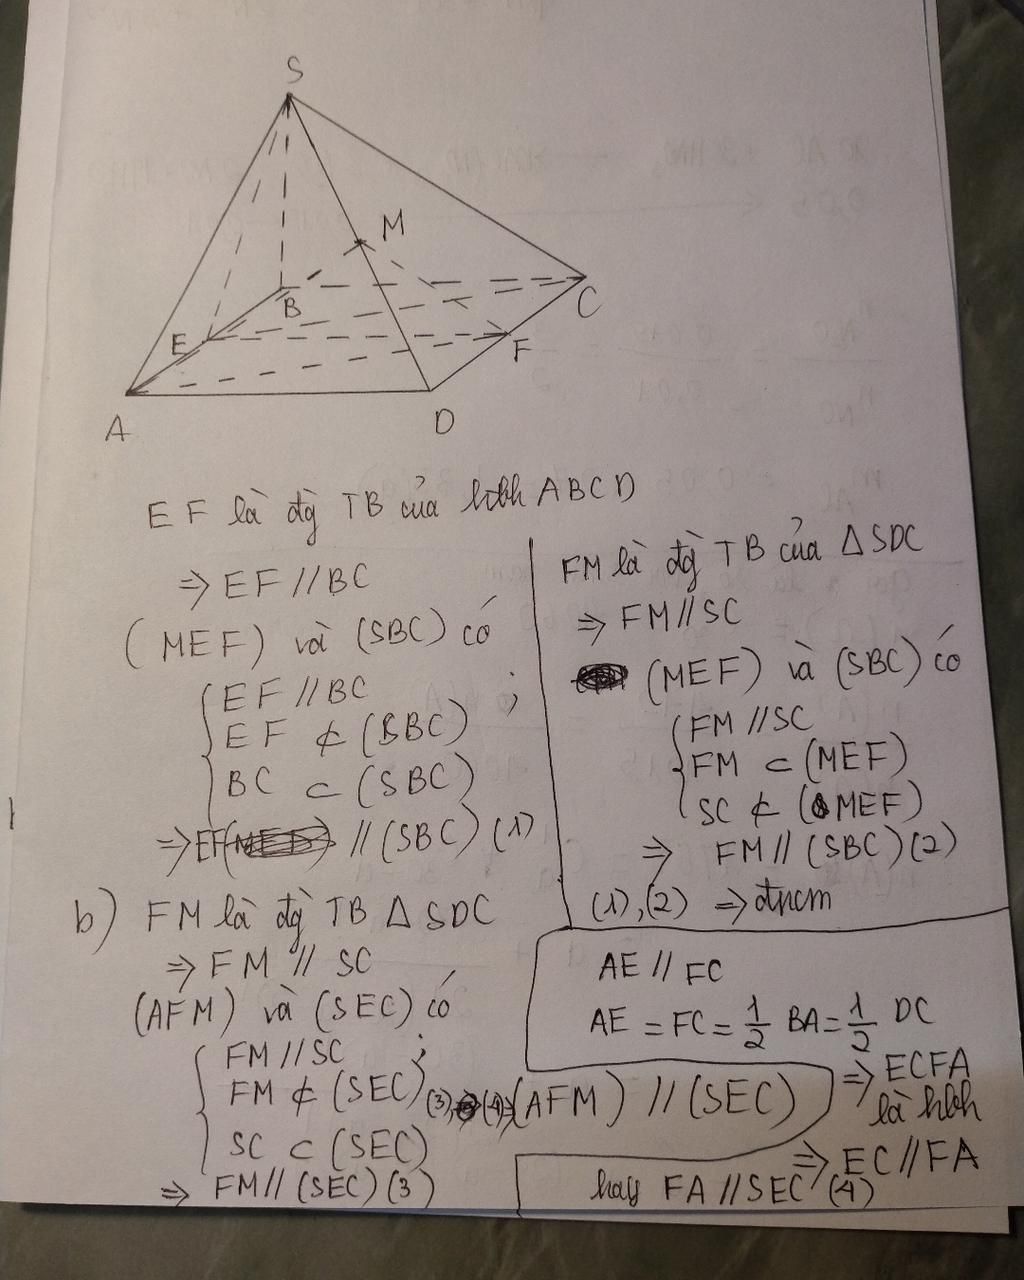 S
M
B
C
E
F
A
D
EF là đg TB của hbh ABCD
⇒ EF // BC
(MEF) và (SBC) có
EF // BC ;
EF ⊄ (SBC)
BC ⊂ (SBC)
⇒ EF // (SBC) (1)
FM là đg TB của ΔSDC
⇒ FM // SC
(MEF) và (SBC) có
FM // SC
FM ⊂ (MEF)
SC ⊄ (MEF)
⇒ FM // (SBC) (2)
(1), (2) ⇒ đpcm
b) FM là đg TB Δ SDC
⇒ FM // SC
(AFM) và (SEC) có
FM // SC ;
FM ⊄ (SEC)
SC ⊂ (SEC)
⇒ FM // (SEC) (3)
AE // FC
AE = FC = 1/2 BA = 1/2 DC
⇒ ECFA
là hbh
⇒ EC // FA
hay FA // SEC (4)
(3), (4) ⇒ (AFM) // (SEC)